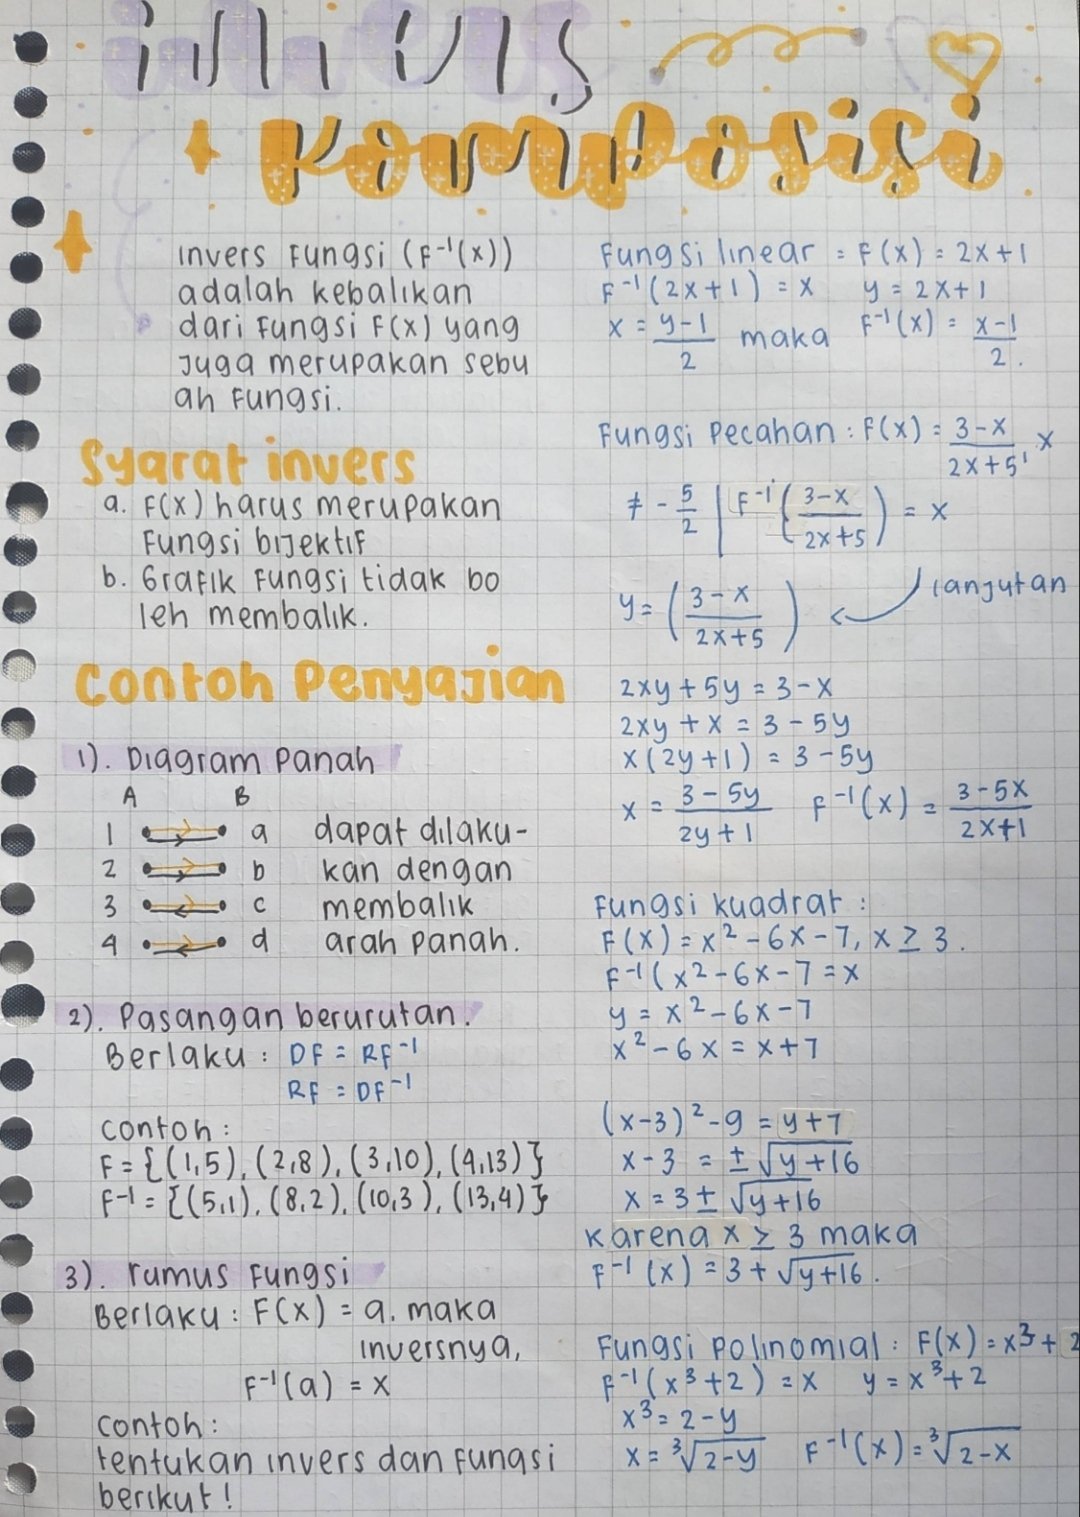 invers
komposisi
invers fungsi (F⁻¹(x))
adalah kebalikan
dari fungsi F(x) yang
juga merupakan sebu
ah fungsi.
Syarat invers
a. F(x) harus merupakan
fungsi bijektif
b. Grafik fungsi tidak bo
leh membalik.
Contoh Penyajian
1). Diagram Panah
A B
1 a dapat dilaku-
2 b kan dengan
3 c membalik
4 d arah panah.
2). Pasangan berurutan.
Berlaku : DF = RF⁻¹
RF = DF⁻¹
contoh :
F = {(1,5), (2,8), (3,10), (4,13)}
F⁻¹ = {(5,1), (8,2), (10,3), (13,4)}
3). rumus fungsi
Berlaku : F(x) = a. maka
inversnya,
F⁻¹(a) = x
contoh :
tentukan invers dan fungsi
berikut !
Fungsi linear = F(x) = 2x+1
F⁻¹(2x+1) = x y = 2x+1
x = (y-1)/2 maka F⁻¹(x) = (x-1)/2.
Fungsi Pecahan : F(x) = (3-x)/(2x+5), x
≠ -5/2 | F⁻¹((3-x)/(2x+5)) = x
lanjutan
y = ((3-x)/(2x+5))
2xy + 5y = 3-x
2xy + x = 3-5y
x(2y+1) = 3-5y
x = (3-5y)/(2y+1) F⁻¹(x) = (3-5x)/(2x+1)
Fungsi kuadrat :
F(x) = x²-6x-7, x ≥ 3.
F⁻¹(x²-6x-7 = x
y = x²-6x-7
x²-6x = x+7
(x-3)²-9 = y+7
x-3 = ±√(y+16)
x = 3 ± √(y+16)
karena x ≥ 3 maka
F⁻¹(x) = 3 + √(y+16).
Fungsi Polinomial : F(x) = x³+2
F⁻¹(x³+2) = x y = x³+2
x³ = 2-y
x = ³√(2-y) F⁻¹(x) = ³√(2-x)